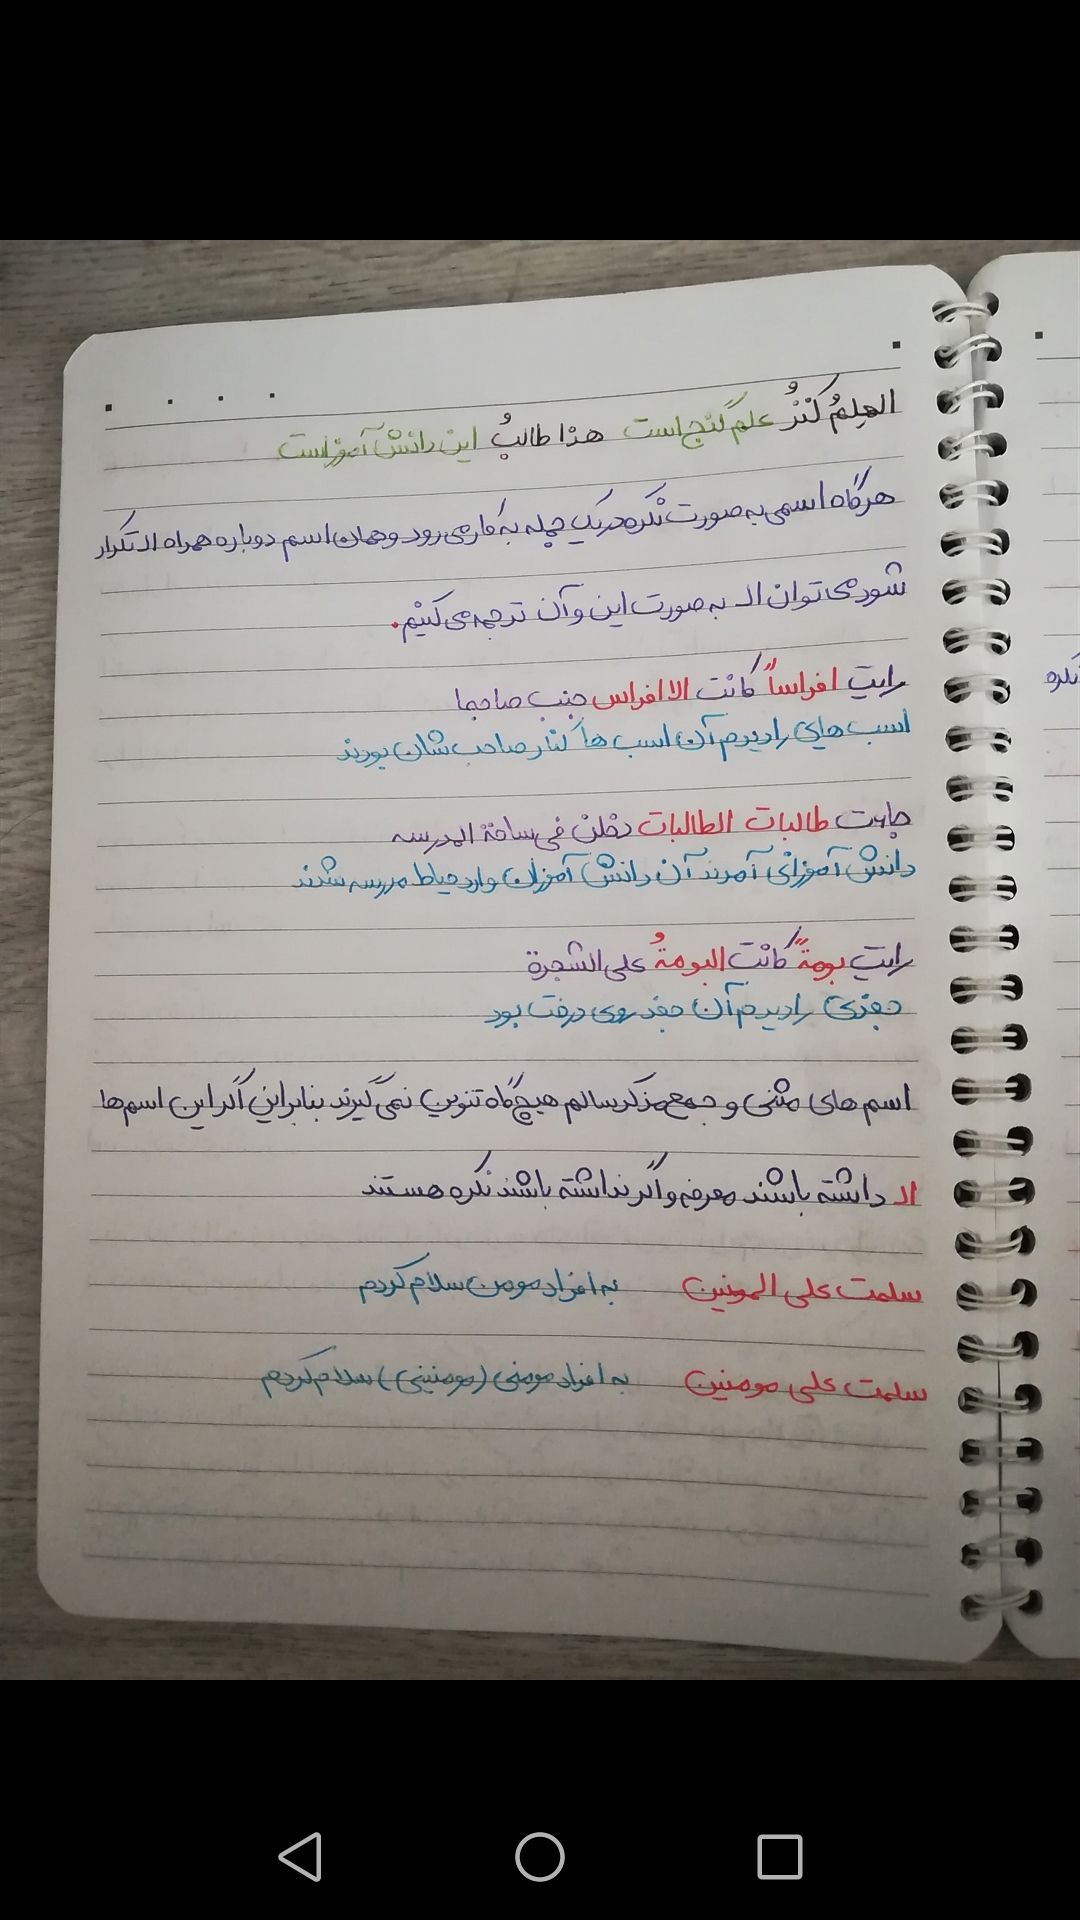 العِلمُ کَنزٌ علم گنج است هذا طالبٌ این دانش آموز است
هرگاه اسمی به صورت نکره در یک جمله به کار می رود و همان اسم دوباره همراه الـ تکرار
شود می توان الـ به صورت این و آن ترجمه می کنیم.
رایتِ افراساً کانَت الا افراس جنب صاحبها
اسب های را دیدم آن اسب ها کنار صاحب شان بودند
جاءت طالبات الطالبات دخلن فی ساحة المدرسه
دانش آموزانی آمدند آن دانش آموزان وارد حیاط مدرسه شدند
رایتِ بومةً کانَت البومةُ علی الشجرة
جغدی را دیدم آن جغد روی درخت بود
اسم های مثنی و جمع مذکر سالم هیچ گاه تنوین نمی گیرند بنابراین اگر این اسم ها
الـ داشته باشند معرفه و اگر نداشته باشند نکره هستند
سلمت علی المونین به افراد مومن سلام کردم
سلمت علی مومنین به افراد مومنی (مومنینی) سلام کردم
نکره